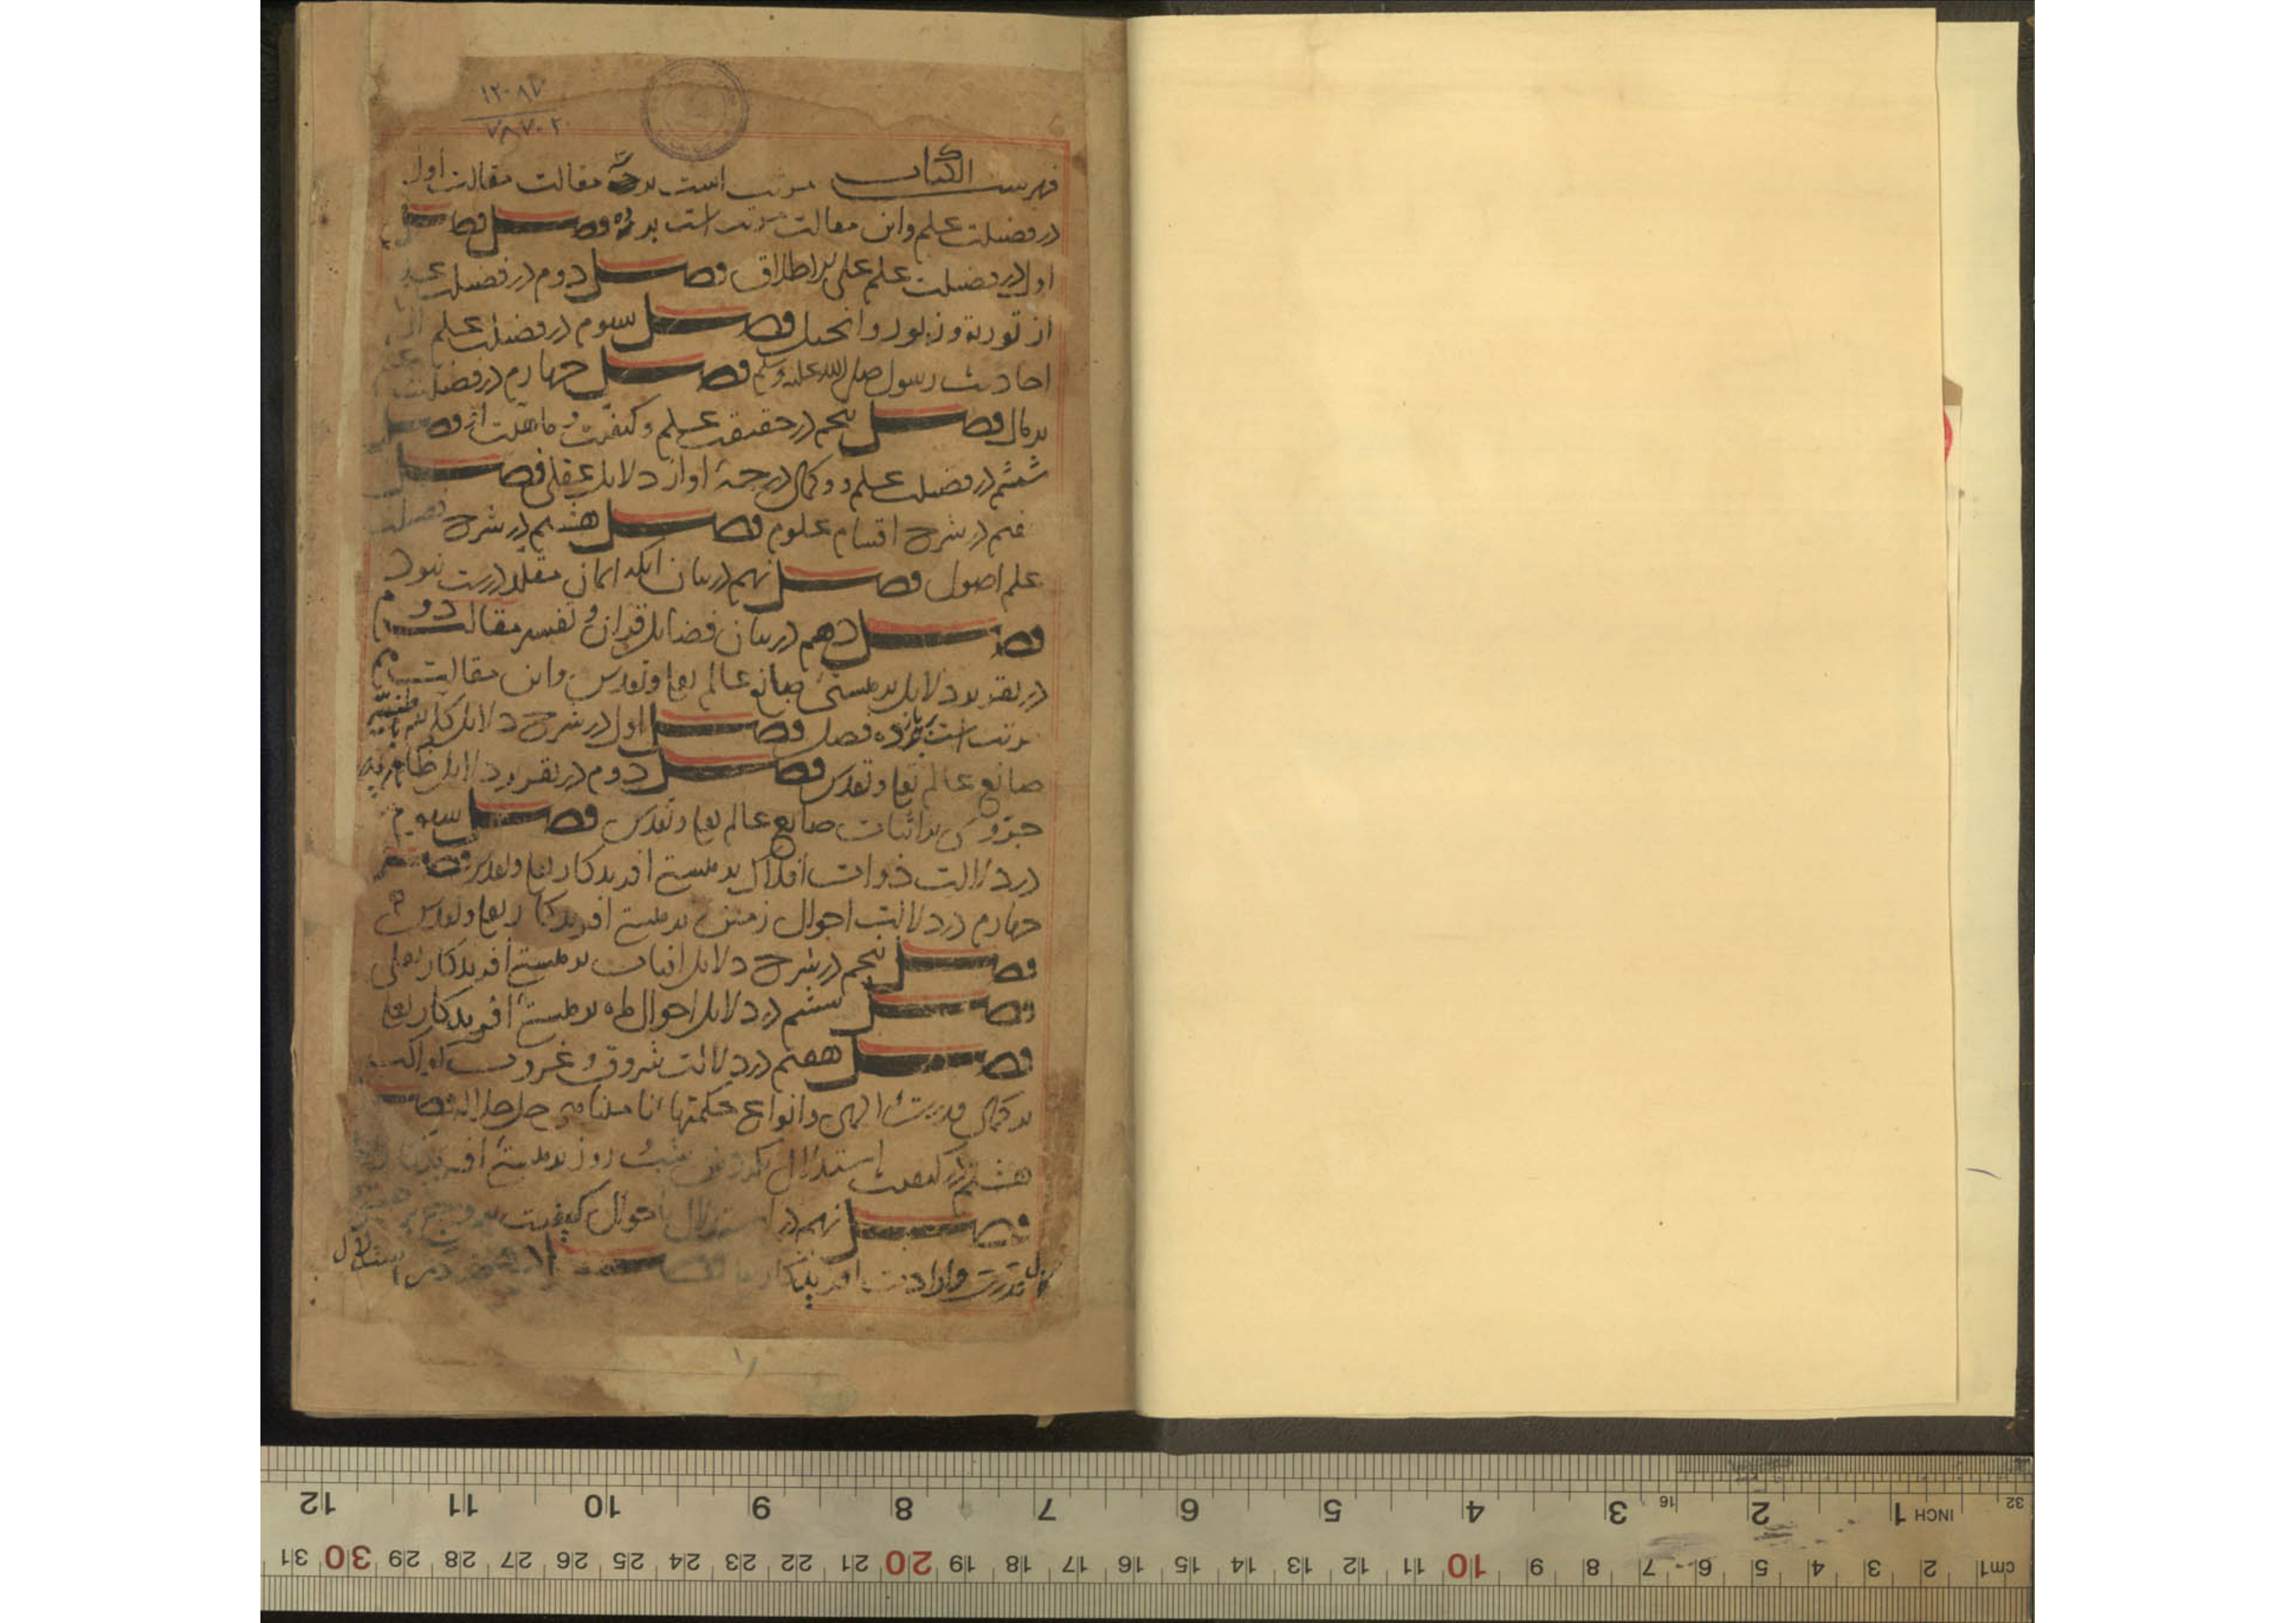 ۱۲۰۸۷
۷۸۷۰۲
فهرست الكتاب مرتب است بر مقالت مقالت اول
در فضیلت علم واین مقالت مرتب است بر ده فصل فصل
اول در فضیلت علم علی الاطلاق فصل دوم در فضیلت علم
از توریة و زبور و انجیل فصل سیوم در فضیلت علم از
احادیث رسول صلی الله علیه وسلم فصل چهارم در فضیلت علم
بر مال فصل پنجم در حقیقت علم و کیفیت و ماهیت او فصل
ششم در فضیلت علم و کمال درجۀ او از دلایل عقلی فصل
هفتم در شرح اقسام علوم فصل هشتم در شرح فضیلت
علم اصول فصل نهم در بیان انکه ایمان مقلد درست نبود
فصل دهم در بیان فضایل قران و تفسیر مقالت دوم
در تقریر دلایل بر هستی صانع عالم تعا وتقدس واین مقالت
مرتب است بر یازده فصل فصل اول در شرح دلایل کلی
صانع عالم تعا وتقدس فصل دوم در تقریر دلایل ظاهر
جزوی بر اثبات صانع عالم تعا وتقدس فصل سیوم
در دلالت ذوات افلاک بر هستی افریدکار تعا وتقدس فصل
چهارم در دلالت احوال زمین بر هستی افریدکار تعا وتقدس
فصل پنجم در شرح دلایل افاق بر هستی افریدکار تعالی
فصل ششم در دلایل احوال ماه بر هستی افریدکار تعا
فصل هفتم در دلالت شروق و غروب کواکب
بر کمال قدرت الهی وانواع حکمتهاء نا متناهی جل جلاله فصل
هشتم در کیفیت استدلال شب روز بر هستی
فصل نهم در استدلال باحوال کیفیت
کمال قدرت وارادت افریدکار تعا فصل دهم در استدلال
۱